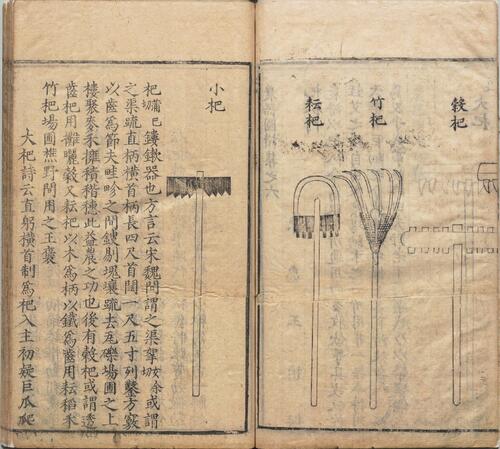 穀杷
竹杷
耘杷
小杷
杷鏤鍬器也方言云宋魏間謂之渠挐或謂
之渠疏直柄橫首柄長四尺首闊一尺五寸列鑿方竅
以齒爲節夫畦畛之間鏤剔塊壤疏去瓦礫場圃之上
樓聚麥禾擁積稭穗此益農之功也後有穀杷或謂透
齒杷用攤曬穀又耘杷以木爲柄以鐵爲齒用耘稻禾
竹杷場圃樵野間用之王襃
大杷詩云直躬橫首制爲杷入主初疑巨瓜爬